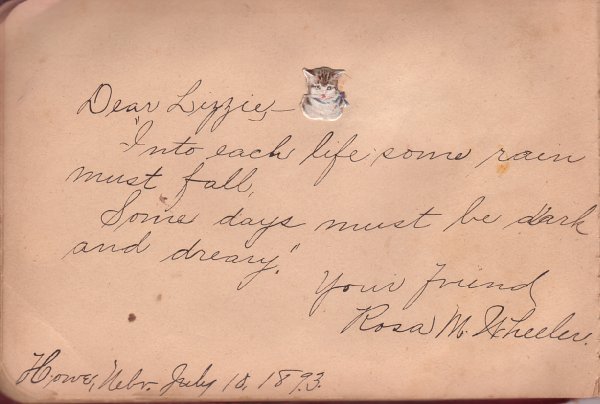 Dear Lizzie,—
"Into each life some rain
must fall,
Some days must be dark
and dreary."
Your friend
Rosa M. Wheeler.
Howe, Nebr. July 10, 1893.